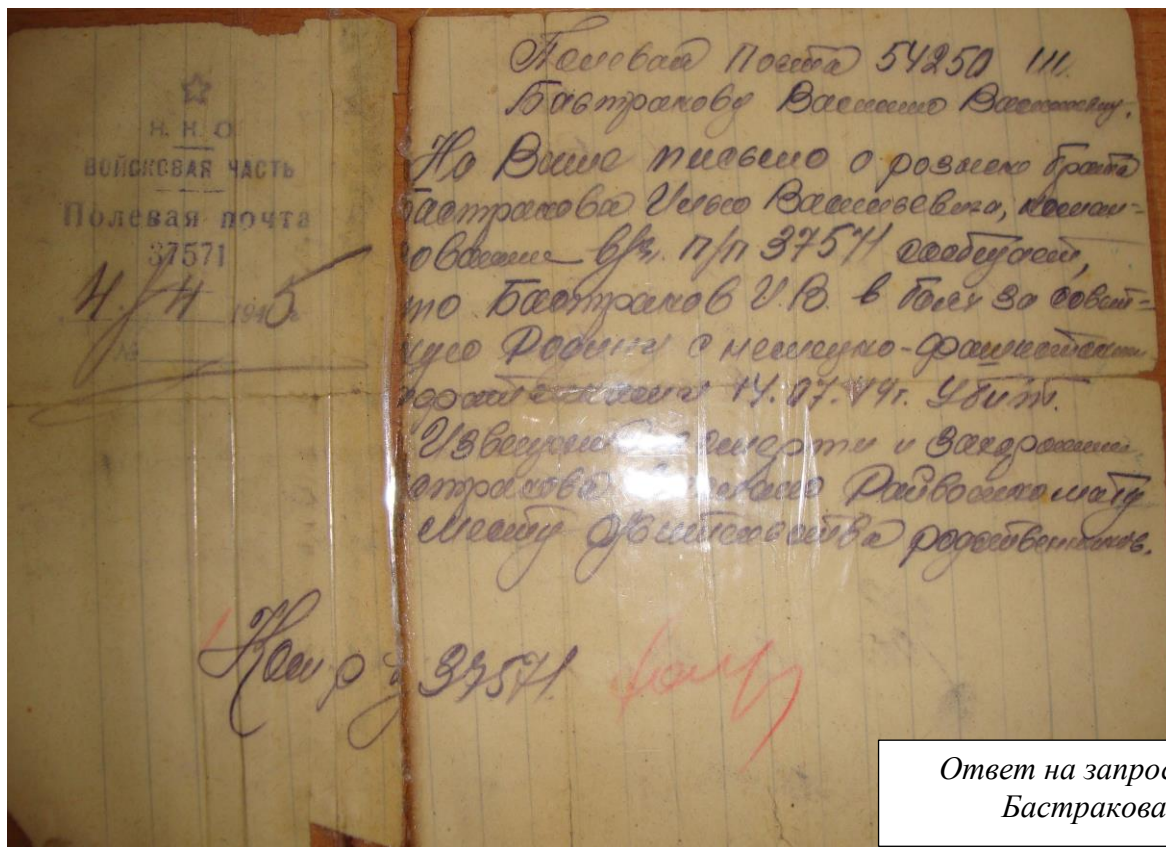 Н. К. О.
ВОЙСКОВАЯ ЧАСТЬ
Полевая почта
37571
4/4 1945г.
№
Полевая Почта 54250 Ш.
Бастракову Василию Васильевичу.
На Ваше письмо о розыске брата
Бастракова Илью Васильевича, коман-
дование в/ч. п/п 37571 сообщает,
что Бастраков И.В. в боях за совет-
скую Родину с немецко-фашистскими
14.07.44г. Убит.
Извещение смерти и захоронении
Бастракова Райвоенкомату
месту жительства родственников.
37571.
Ответ на запрос
Бастракова